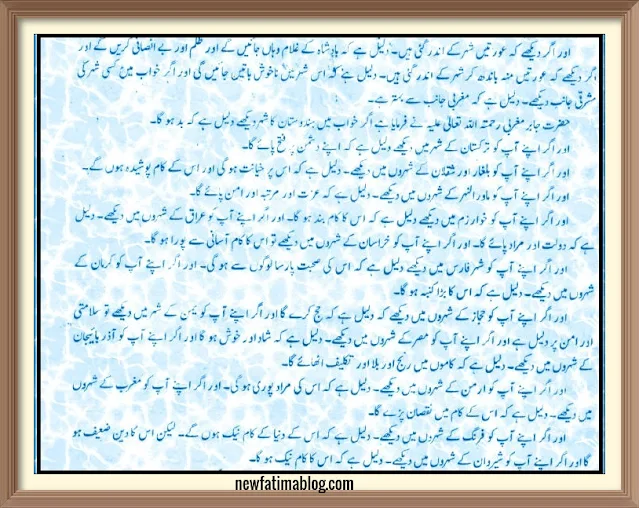 اور اگر دیکھے کہ عورتیں شہر کے اندر گئی ہیں۔ دلیل ہے کہ بادشاہ کے غلام وہاں جائیں گے اور ظلم اور بے انصافی کریں گے اور
اگر دیکھے کہ عورتیں منہ باندھ کر شہر کے اندر گئی ہیں۔ دلیل ہے کہ اس شہر میں ناخوش باتیں جائیں گی اور اگر خواب میں کسی شہر کی
مشرقی جانب دیکھے۔ دلیل ہے کہ مغربی جانب سے بہتر ہے۔
حضرت جابر مغربی رحمتہ اللہ تعالیٰ علیہ نے فرمایا ہے اگر خواب میں ہندوستان کا شہر دیکھے دلیل ہے کہ بد ہو گا۔
اور اگر اپنے آپ کو ترکستان کے شہر میں دیکھے دلیل ہے کہ اپنے دشمن پر فتح پائے گا۔
اور اگر اپنے آپ کو بلغار اور شقلان کے شہروں میں دیکھے۔ دلیل ہے کہ اس پر خیانت ہو گی اور اس کے کام پوشیدہ ہوں گے۔
اور اگر اپنے آپ کو ماورالنہر کے شہروں میں دیکھے۔ دلیل ہے کہ عزت اور مرتبہ اور امن پائے گا۔
اور اگر اپنے آپ کو خوارزم میں دیکھے دلیل ہے کہ اس کا کام بند ہو گا۔ اور اگر اپنے آپ کو عراق کے شہروں میں دیکھے۔ دلیل
ہے کہ دولت اور مراد پائے گا۔ اور اگر اپنے آپ کو خراسان کے شہروں میں دیکھے تو اس کا کام آسانی سے پورا ہو گا۔
اور اگر اپنے آپ کو شہر فارس میں دیکھے دلیل ہے کہ اس کی صحبت پارسا لوگوں سے ہو گی۔ اور اگر اپنے آپ کو کرمان کے
شہروں میں دیکھے۔ دلیل ہے کہ اس کا بڑا کنبہ ہو گا۔
اور اگر اپنے آپ کو حجاز کے شہروں میں دیکھے دلیل ہے کہ حج کرے گا اور اگر اپنے آپ کو یمن کے شہر میں دیکھے تو سلامتی
اور امن پر دلیل ہے اور اگر اپنے آپ کو مصر کے شہروں میں دیکھے۔ دلیل ہے کہ شاد اور خوش ہو گا اور اگر اپنے آپ کو آذربائیجان
کے شہروں میں دیکھے۔ دلیل ہے کہ کاموں میں رنج اور بلا اور تکلیف اٹھائے گا۔
اور اگر اپنے آپ کو ارمن کے شہروں میں دیکھے۔ دلیل ہے کہ اس کی مراد پوری ہو گی۔ اور اگر اپنے آپ کو مغرب کے شہروں
میں دیکھے۔ دلیل ہے کہ اس کے کام میں نقصان پڑے گا۔
اور اگر اپنے آپ کو فرنگ کے شہروں میں دیکھے۔ دلیل ہے کہ اس کے دنیا کے کام نیک ہوں گے۔ لیکن اس کا دین ضعیف ہو
گا اور اگر اپنے آپ کو شیروان کے شہروں میں دیکھے۔ دلیل ہے کہ اس کا کام نیک ہو گا۔
newfatimablog.com